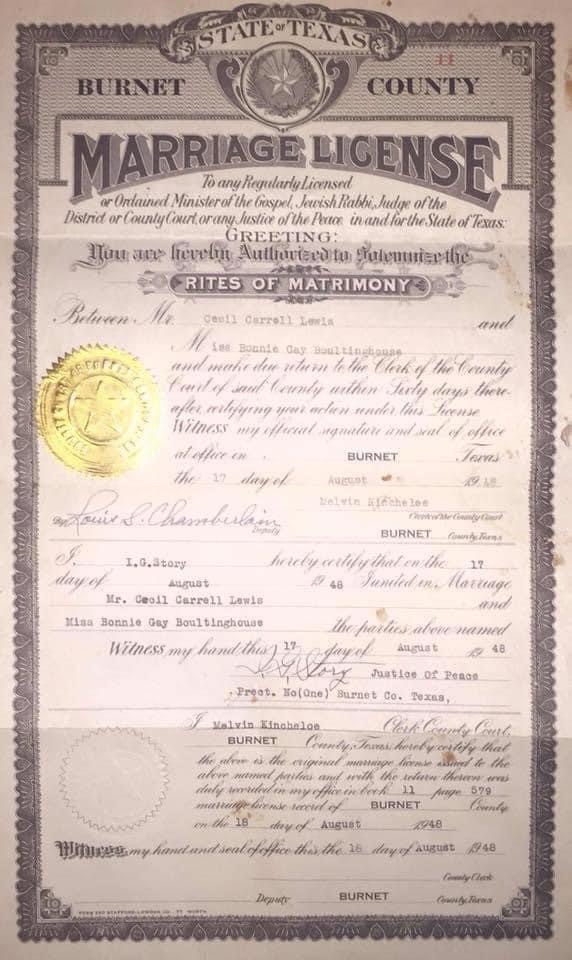 STATE OF TEXAS
11
BURNET COUNTY
MARRIAGE LICENSE
To any Regularly Licensed
or Ordained Minister of the Gospel, Jewish Rabbi, Judge of the
District or County Court, or any Justice of the Peace in and for the State of Texas:
GREETING:
You are hereby Authorized to Solemnize the
RITES OF MATRIMONY
Between Mr. Cecil Carrell Lewis and
Miss Bonnie Gay Boultinghouse
and make due return to the Clerk of the County
Court of said County within Sixty days there-
after, certifying your action under this License
Witness my official signature and seal of office
at office in BURNET Texas
the 17 day of August 1948
Melvin Kincheloe
Clerk of the County Court
By Louis S. Chamberlain
Deputy
BURNET County, Texas
I, I.G.Story hereby certify that on the 17
day of August 1948 I united in Marriage
Mr. Cecil Carrell Lewis and
Miss Bonnie Gay Boultinghouse the parties above named
Witness my hand this 17 day of August 1948
I. G. Story Justice Of Peace
Prect. No(One) Burnet Co. Texas,
I Melvin Kincheloe Clerk County Court,
BURNET County, Texas, hereby certify that
the above is the original marriage license issued to the
above named parties and with the return thereon was
duly recorded in my office in book 11 page 579
marriage license record of BURNET County
on the 18 day of August 1948
Witness my hand and seal of office this the 18 day of August 1948
County Clerk
Deputy BURNET County, Texas
STAFFORD-LOWDON CO. FT. WORTH